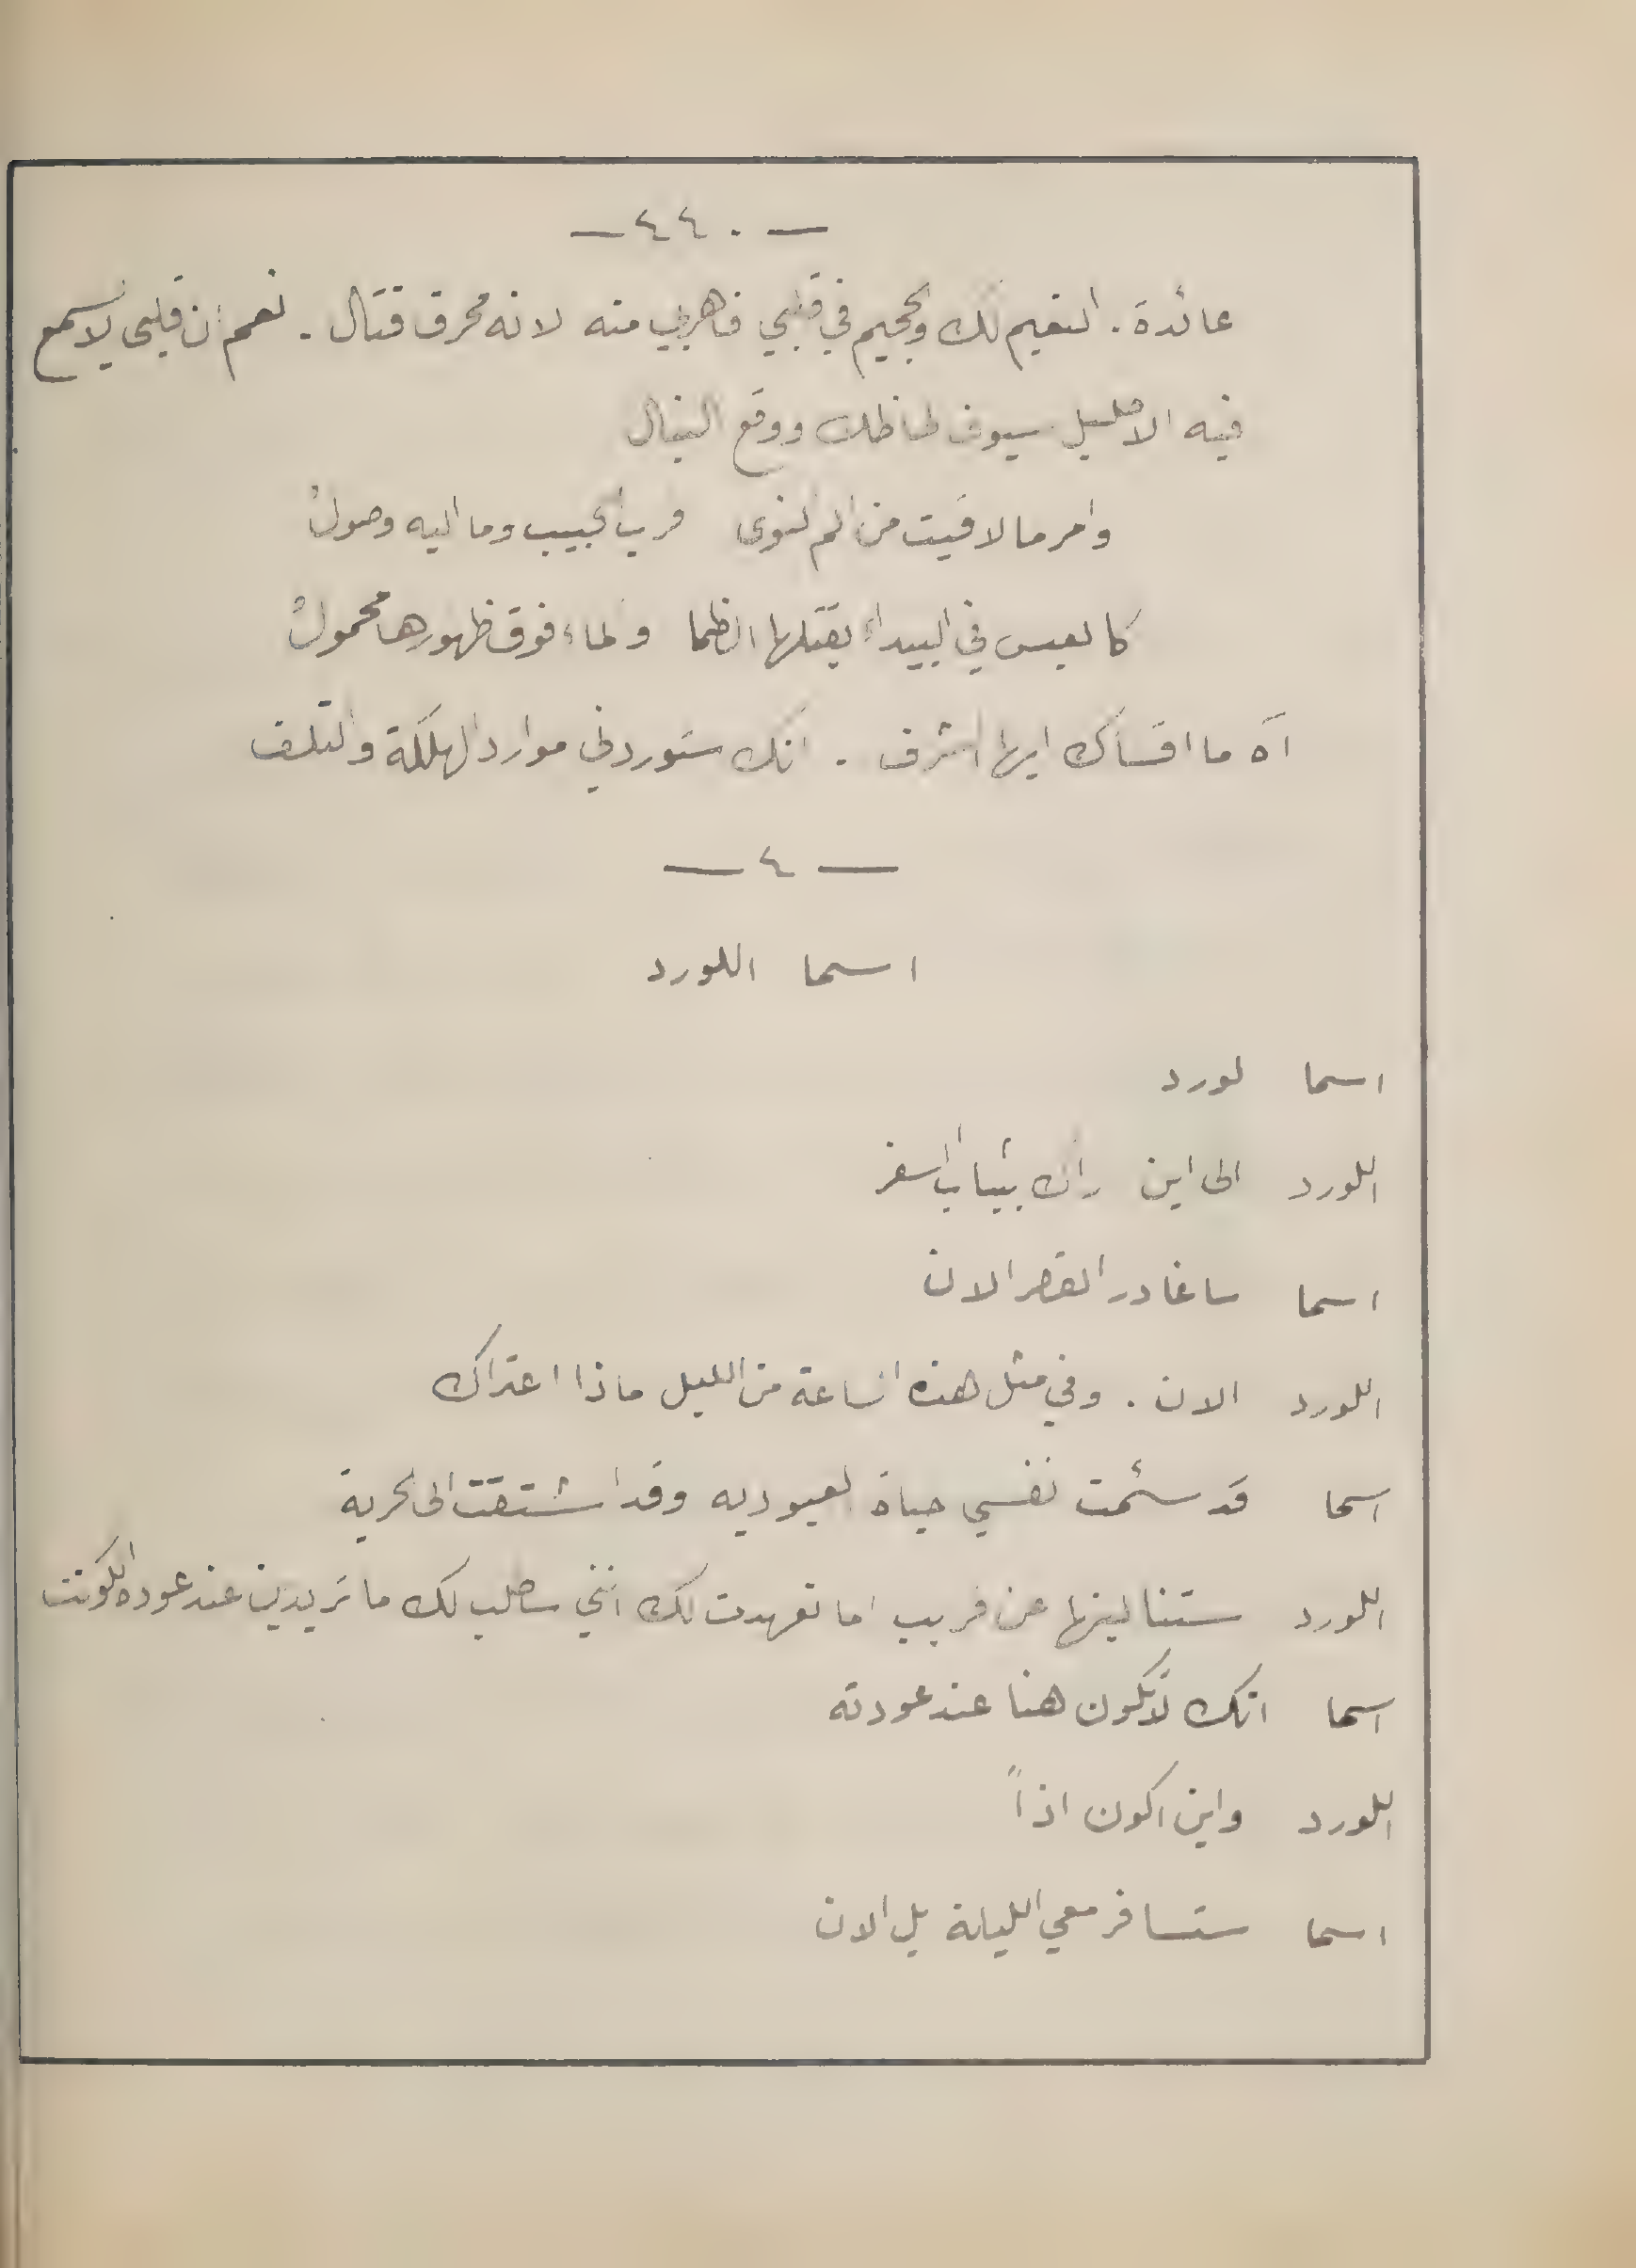 — ٤٤٠ —
عائدة . النعيم لك والجحيم في قلبي فاهربي منه لانه محرق قتال . نعم ان قلبي لا يسمع
فيه الا صليل سيوف لحاظك ووقع النبال
وامر ما لاقيت من الم النوى قرب الحبيب وما اليه وصولُ
كالعيس في البيداءِ يقتلها الظما والماء فوق ظهورها محمولُ
آه ما اقساك ايها الشرف . انك ستوردني موارد الهلكة والتلف
— ٤ —
اسما اللورد
اسما لورد
اللورد الى اين اراك بثياب السفر
اسما ساغادر القصر الان
اللورد الان . وفي مثل هذه الساعة من الليل ماذا اعتراك
اسما قد سئمت نفسي حياة العبوديه وقد اشتقت الى الحرية
اللورد ستنالينها عن قريب اما تعهدت لك انني ساطلب لك ما تريدين عند عوده الكونت
اسما انك لا تكون هنا عند عودته
اللورد واين اكون اذاً
اسما ستسافر معي الليلة بل الان